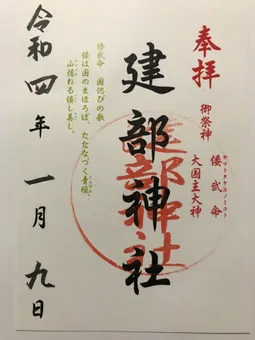 奉拝
御祭神
倭武命
ヤマトタケルノミコト
大国主大神
建部神社
建部神社
倭武命 国偲びの歌
倭は国のまほろば、たたなづく青垣、
山隠れる倭し美し。
令和四年一月九日